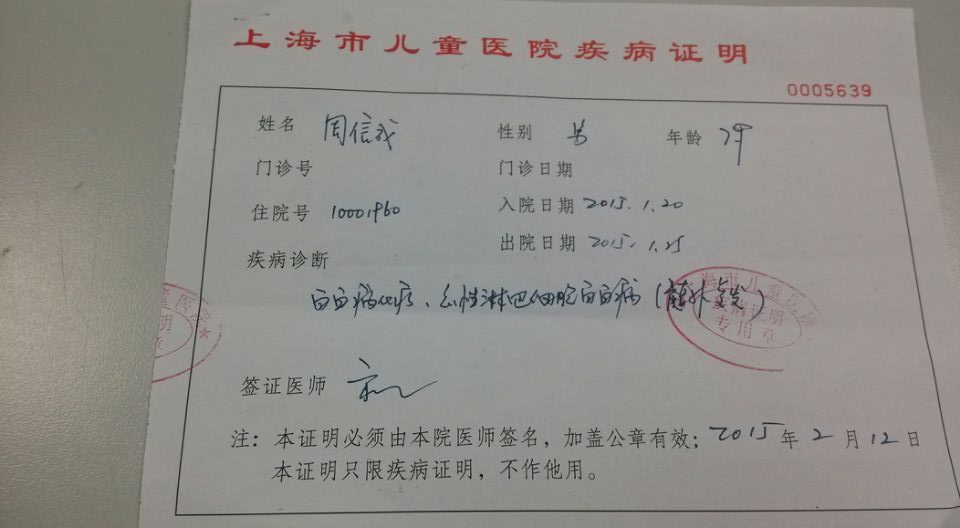 上海市儿童医院疾病证明
0005639
姓名 周信我 性别 男 年龄 7岁
门诊号 门诊日期
住院号 10001960 入院日期 2015.1.20
出院日期 2015.1.25
疾病诊断
白血病化疗、急性淋巴细胞白血病(髓外复发)
上海市儿童医院
疾病证明
专用章
签证医师
注：本证明必须由本院医师签名，加盖公章有效；2015年2月12日
本证明只限疾病证明，不作他用。